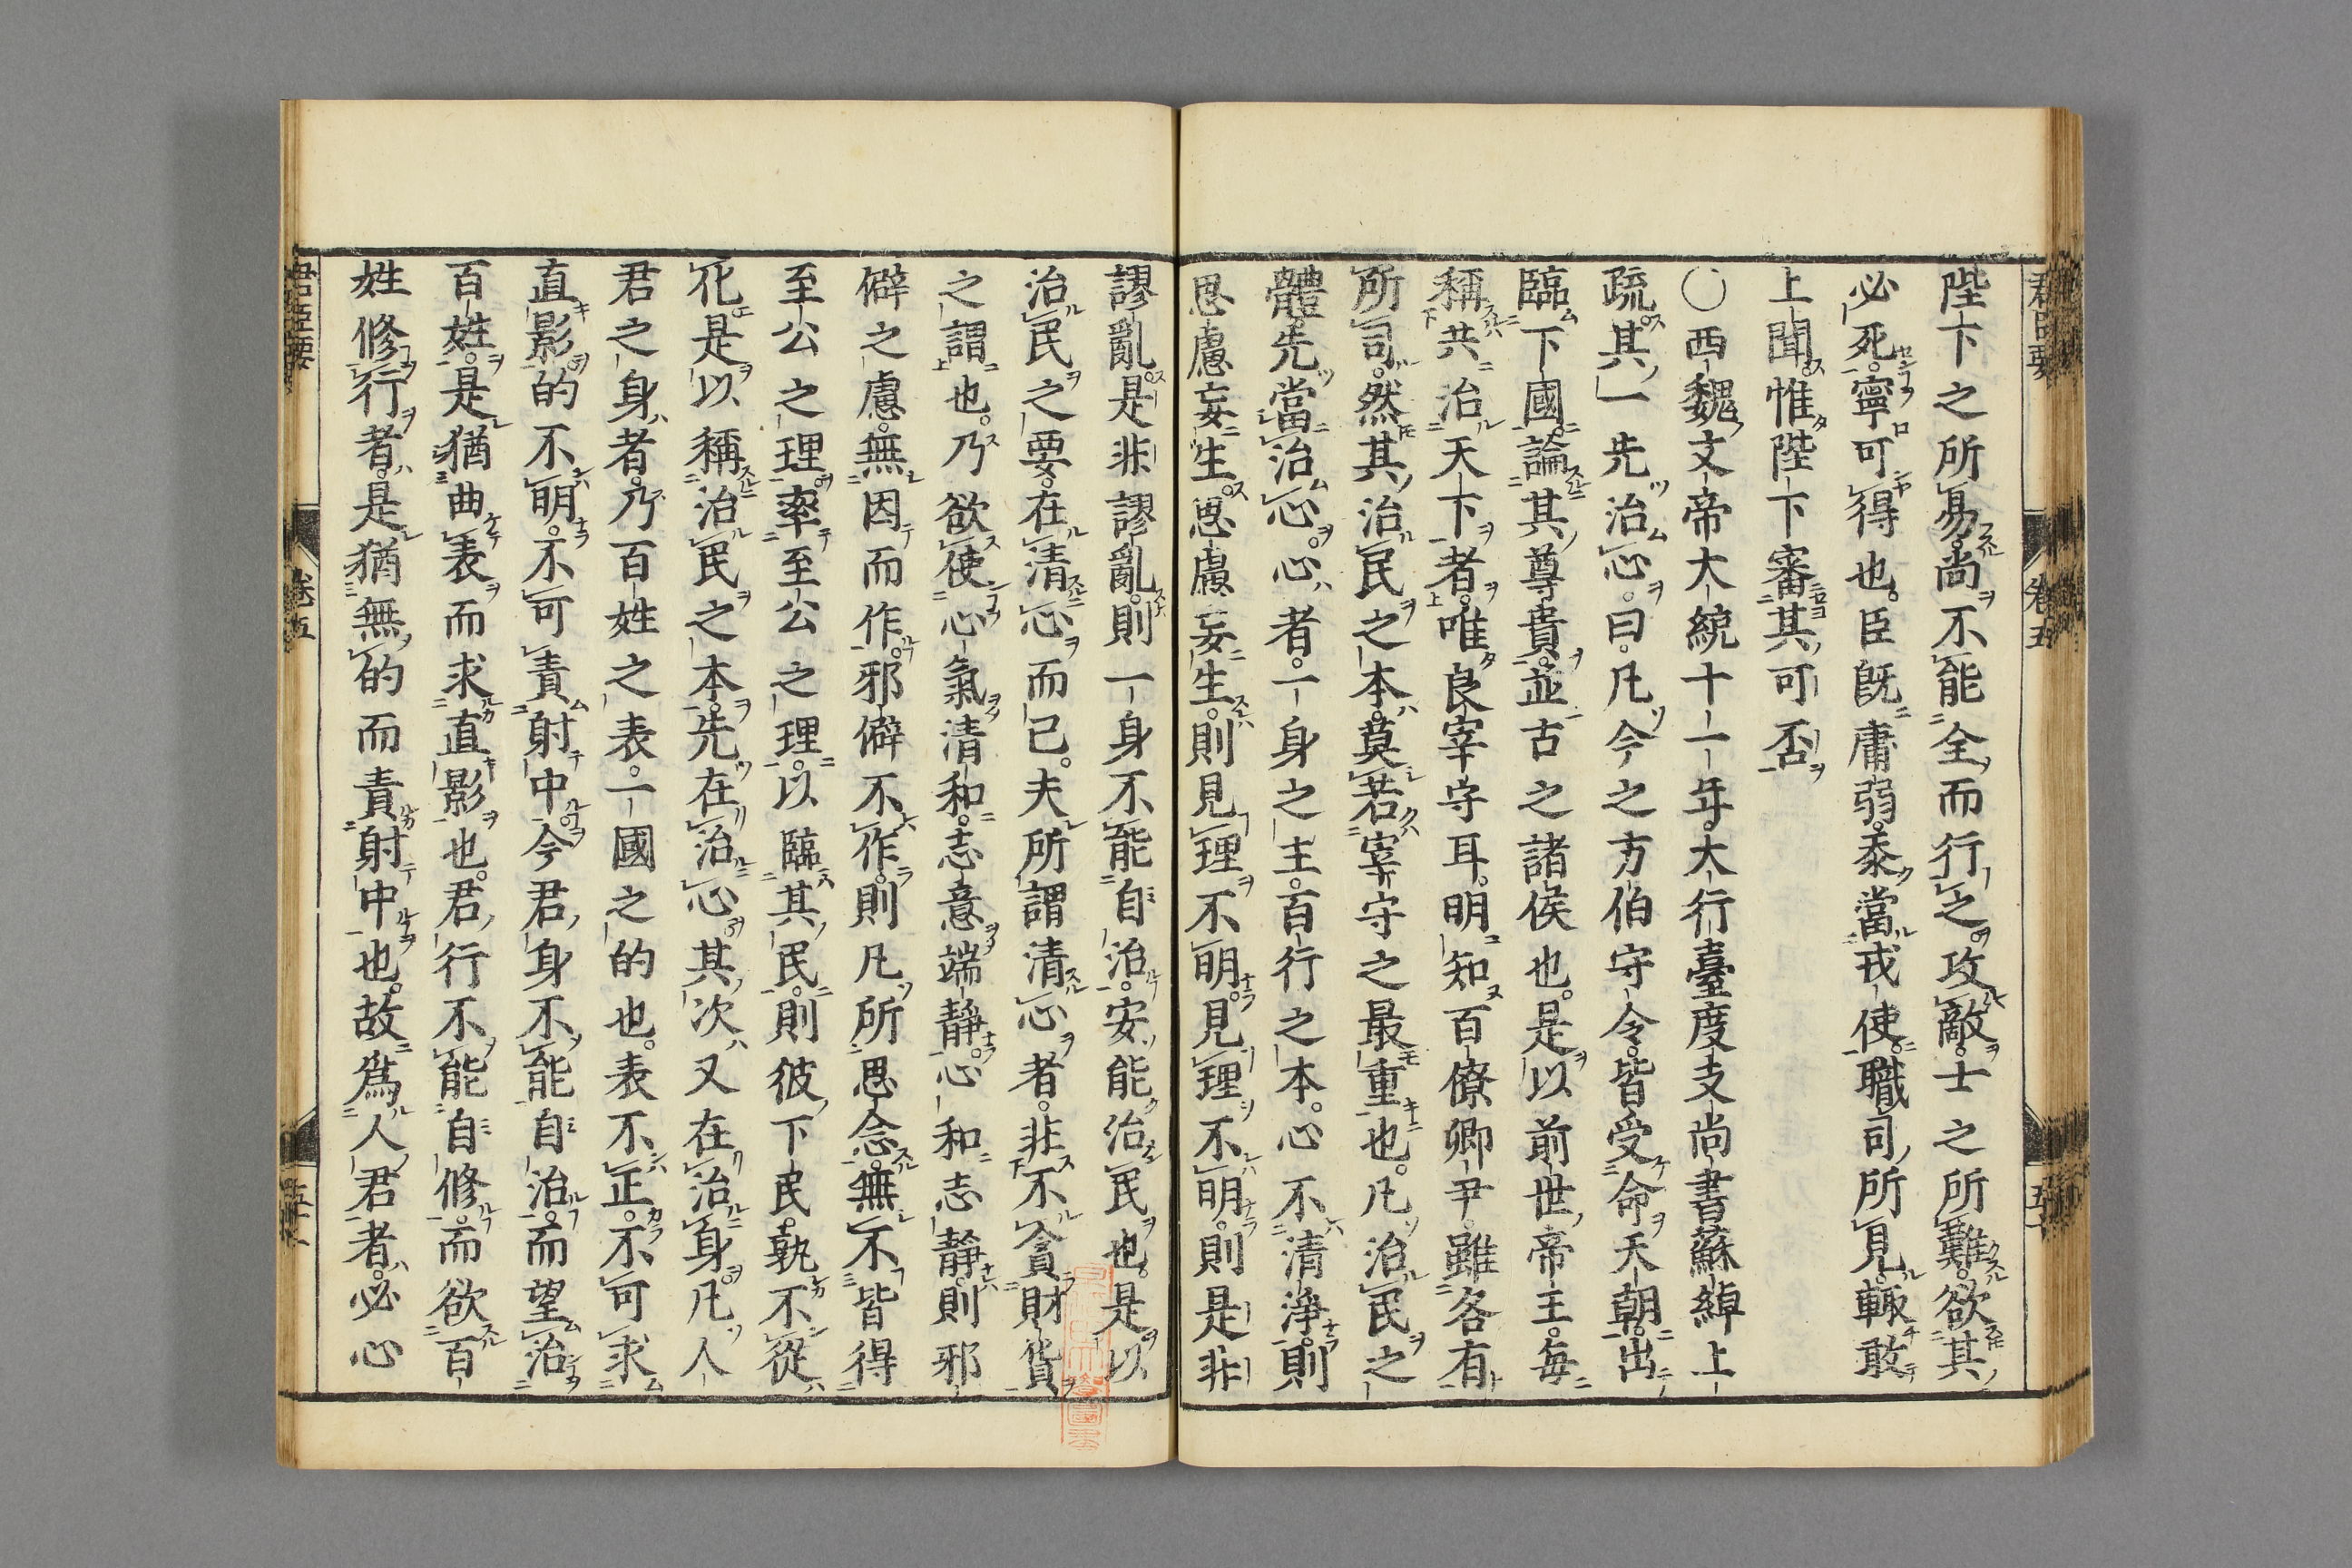 陛下之所易尚不能全而行之攻敵士之所難欲其
必死寧可得也臣既庸弱忝當戎使職司所見輙敢
上聞惟陛下審其可否
〇西魏文帝大統十一年大行臺度支尚書蘇綽上
疏其一先治心曰凡今之方伯守令皆受命天朝出
臨下國論其尊貴並古之諸侯也是以前世帝王每
稱共治天下者唯良宰守耳明知百僚卿尹雖各有
所司然其治民之本莫若宰守之最重也凡治民之
體先當治心心者一身之主百行之本心不清淨則
思慮妄生思慮妄生則見理不明見理不明則是非
謬亂是非謬亂則一身不能自治安能治民也是以
治民之要在清心而已夫所謂清心者非不貪財貨
之謂也乃欲使心氣清和志意端靜心和志靜則邪
僻之慮無因而作邪僻不作則凡所思念無不皆得
至公之理率至公之理以臨其民則彼下民孰不從
化是以稱治民之本先在治心其次又在治身凡人
君之身者乃百姓之表一國之的也表不正不可求
直影的不明不可責射中今君身不能自治而望治
百姓是猶曲表而求直影也君行不能自修而欲百
姓修行者是猶無的而責射中也故爲人君者必心
君臣要
卷五